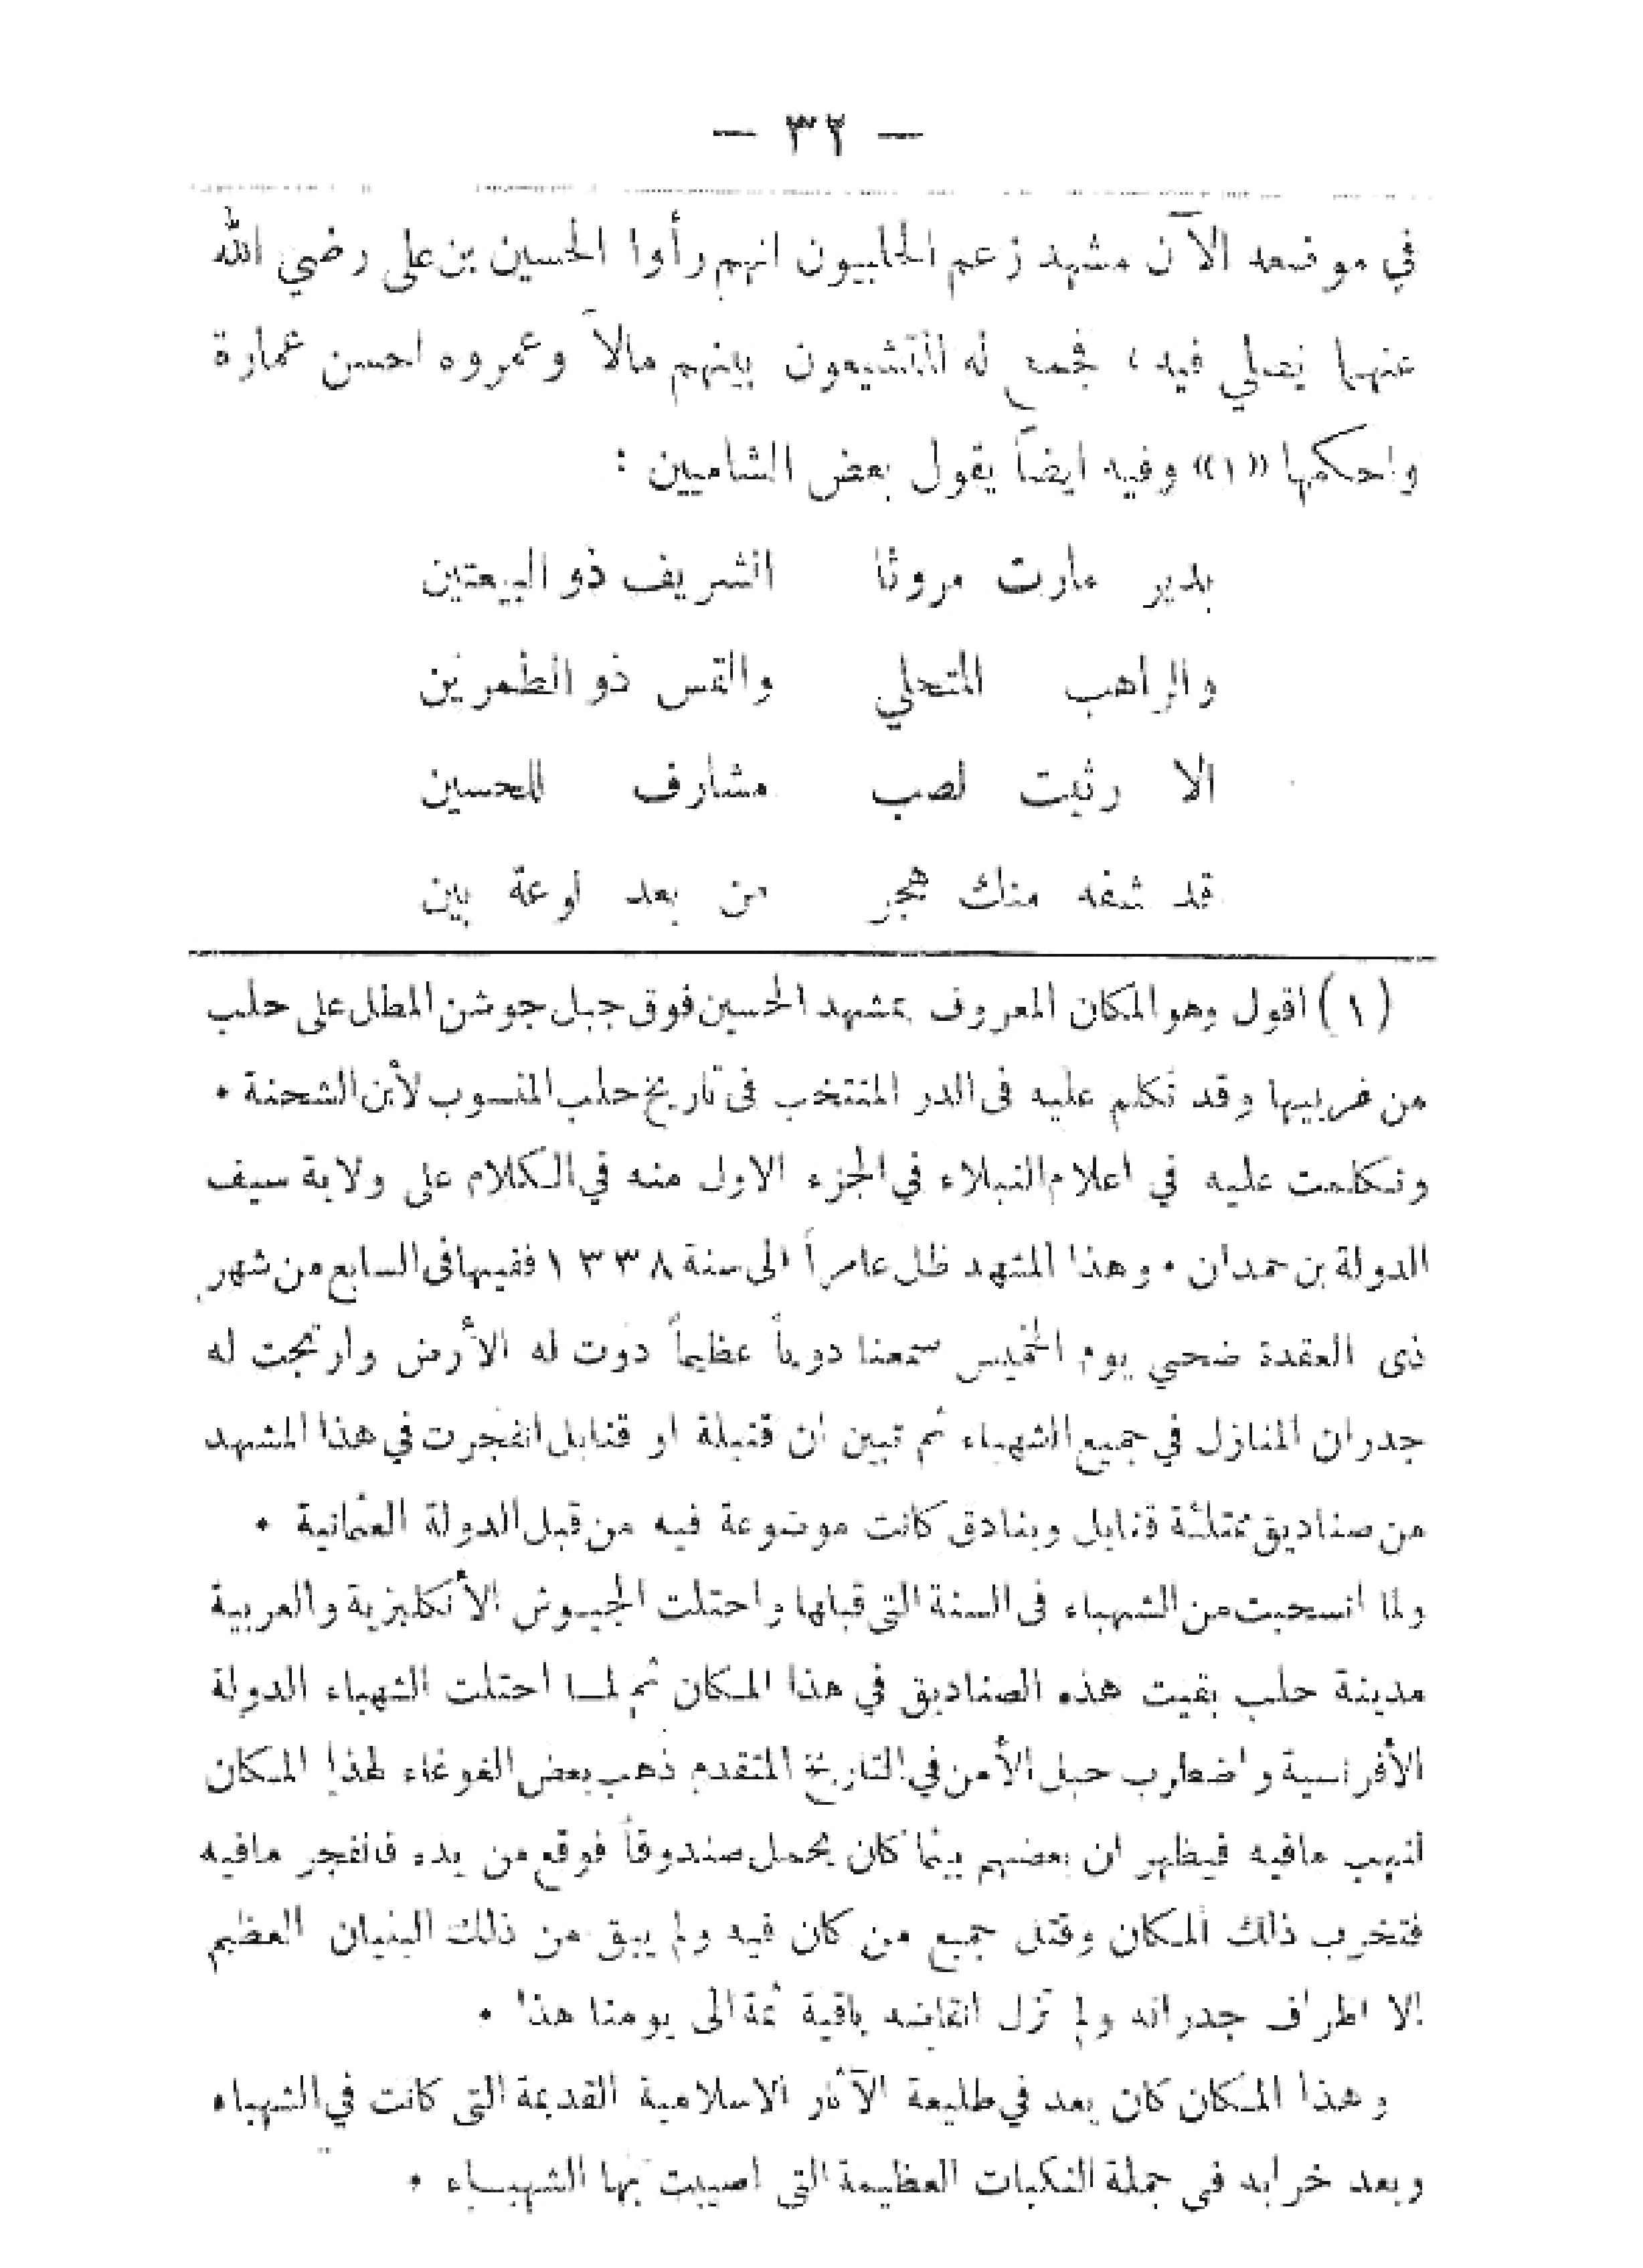 — ٣٢ —
في موضعه الآن مشهد زعم الحلبيون انهم رأوا الحسين بن على رضي الله
عنهما يصلي فيه ، فجمع له المتشيعون بينهم مالاً وعمروه احسن عمارة
واحكمها «١» وفيه ايضاً يقول بعض الشاميين :
بدير مارت مروثا الشريف ذو البيعتين
والراهب المتحلي والقس ذو الطمرين
الا رثيت لصب مشارف للحسين
قد شفه منك هجر من بعد لوعة بين
(١) اقول وهو المكان المعروف بمشهد الحسين فوق جبل جوشن المطل على حلب
من غربيها وقد تكلم عليه فى الدر المنتخب فى تاريخ حلب المنسوب لأبن الشحنة •
وتكلمت عليه في اعلام النبلاء في الجزء الاول منه في الكلام على ولاية سيف
الدولة بن حمدان • وهذا المشهد ظل عامراً الى سنة ١٣٣٨ ففيها فى السابع من شهر
ذى القعدة ضحي يوم الخميس سمعنا دوياً عظيماً دوت له الأرض وارتجت له
جدران المنازل في جميع الشهباء ثم تبين ان قنبلة او قنابل انفجرت في هذا المشهد
من صناديق ممتلئة قنابل وبنادق كانت موضوعة فيه من قبل الدولة العثمانية •
ولما انسحبت من الشهباء فى السنة التى قبلها واحتلت الجيوش الأنكليزية والعربية
مدينة حلب بقيت هذه الصناديق في هذا المكان ثم لما احتلت الشهباء الدولة
الأفرنسية واضطرب حبل الأمن في التاريخ المتقدم ذهب بعض الغوغاء لهذا المكان
لنهب مافيه فيظهر ان بعضهم بينما كان يحمل صندوقاً فوقع من يده فانفجر مافيه
فتخرب ذلك المكان وقتل جميع من كان فيه ولم يبق من ذلك البنيان العظيم
الا اطراف جدرانه ولم تزل انقاضه باقية ثمة الى يومنا هذا •
وهذا المكان كان يعد في طليعة الآثار الاسلامية القديمة التى كانت في الشهباء
ويعد خرابه في جملة النكبات العظيمة التى اصيبت بها الشهباء •